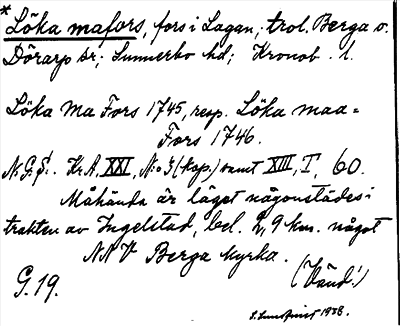 * Löka mafors, fors i Lagan; trol. Berga o.
Dörarp sr; Sunnerbo hd; Kronob. l.
Löka Ma Fors 1745, resp. Löka maa=
Fors 1746.
N.G.S. Kr.A. XXI, N:o 3 (kop.) samt XIII, I, 60.
Måhända är läget någonstädes i
trakten av Ingelstad, bel. 2,9 km. något
NNV Berga kyrka.
(Vänd!)
G. 19.
1938.